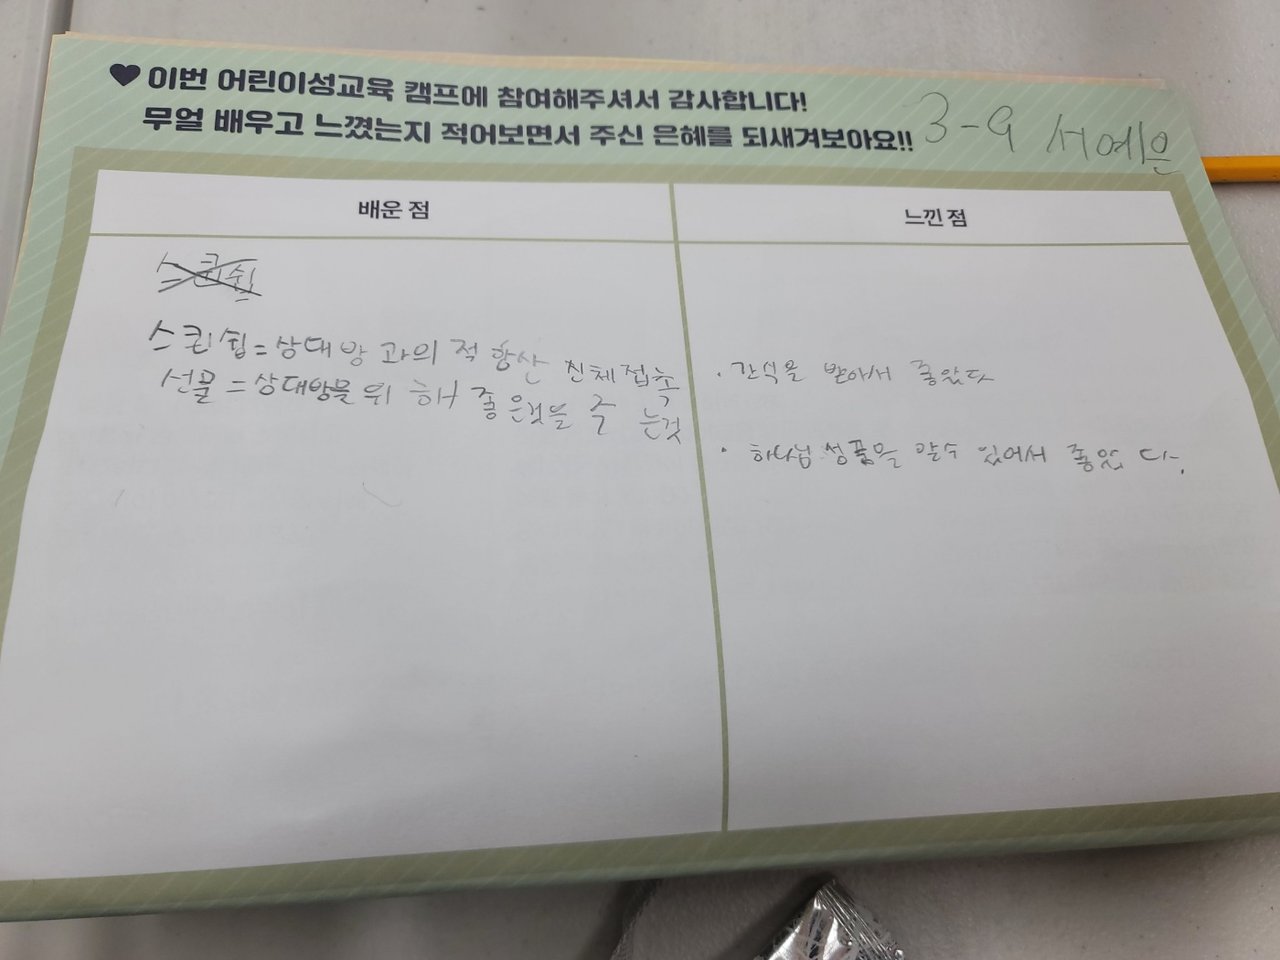 이번 어린이성교육 캠프에 참여해주셔서 감사합니다!
무얼 배우고 느꼈는지 적어보면서 주신 은혜를 되새겨보아요!!
3-9 서예은
배운 점
느낀 점
스킨쉽
스킨쉽=상대방과의 적항산 신체접촉
선물=상대방을 위해 좋은것을 주는것
· 간식을 받아서 좋았다
· 하나님 성품을 알수 있어서 좋았다.